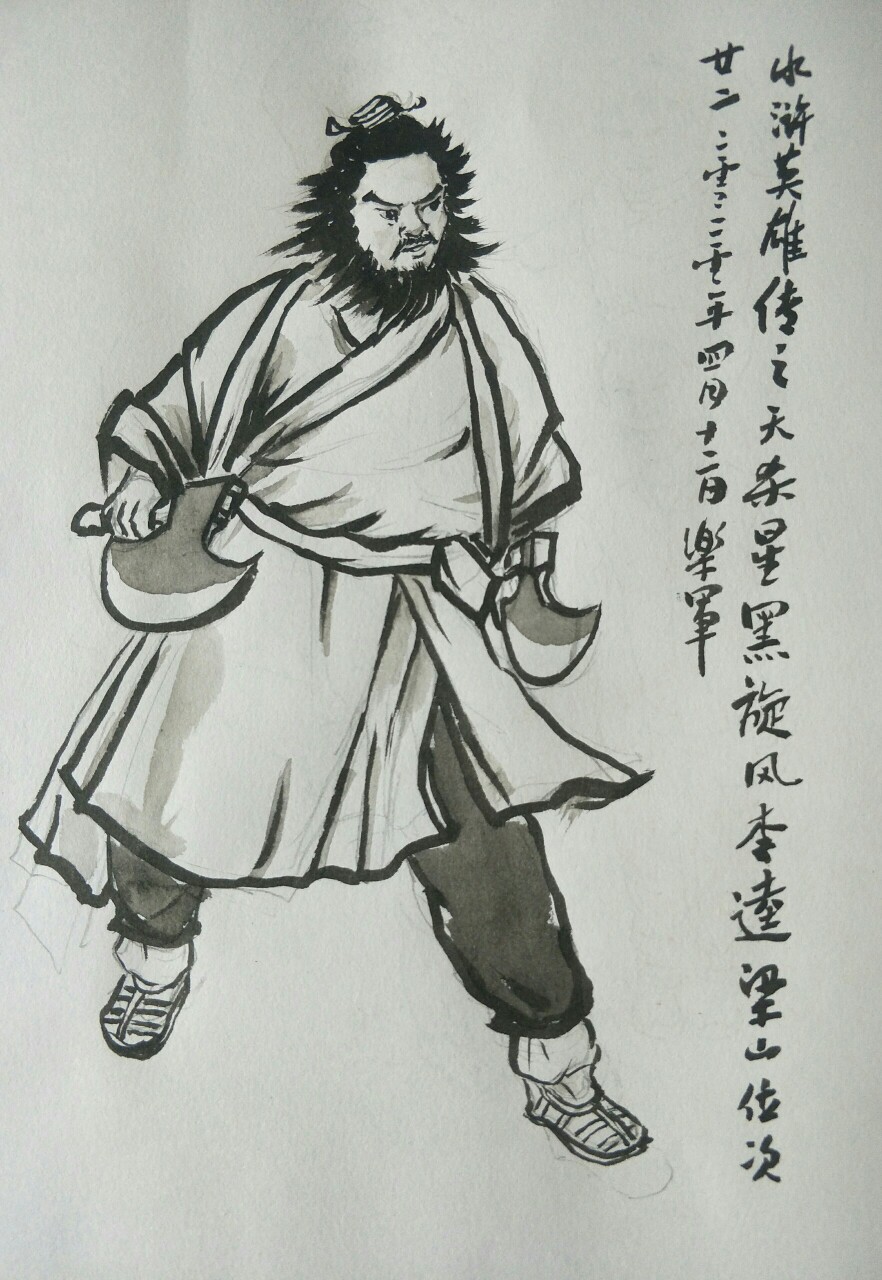 水浒英雄传之天杀星黑旋风李逵梁山位次
廿二 年四月十二日 樂軍